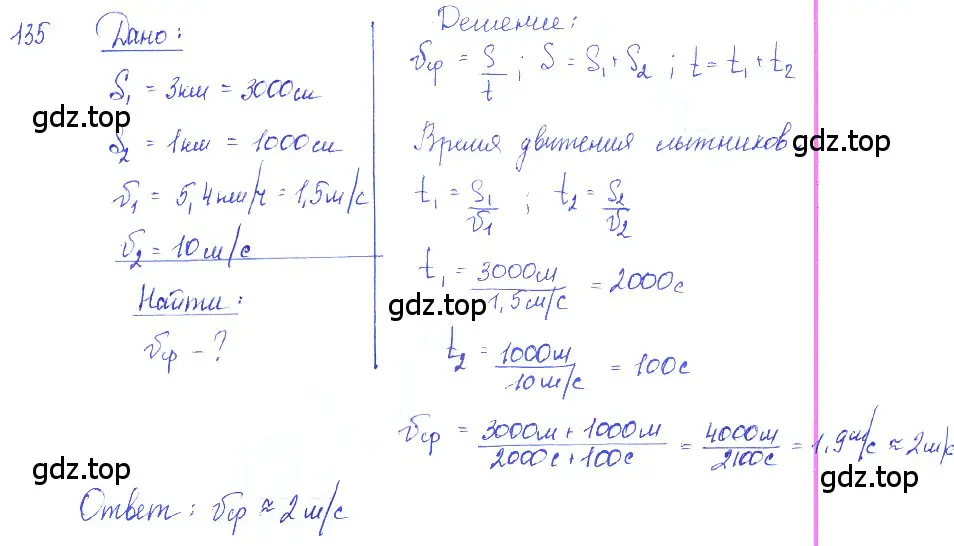 135 Дано:
S₁ = 3км = 3000м
gdz.top
S₂ = 1км = 1000м
υ₁ = 5,4км/ч = 1,5м/с
υ₂ = 10м/с
Найти:
υср - ?
Решение:
υср = S/t ; S = S₁ + S₂ ; t = t₁ + t₂
Время движения лыжников
gdz.top
t₁ = S₁/υ₁ ; t₂ = S₂/υ₂
t₁ = 3000м/1,5м/с = 2000с
gdz.top
t₂ = 1000м/10м/с = 100с
υср = 3000м + 1000м/2000с + 100с = 4000м/2100с = 1,9м/с ≈ 2м/с
gdz.top
gdz.top
Ответ: υср ≈ 2м/с